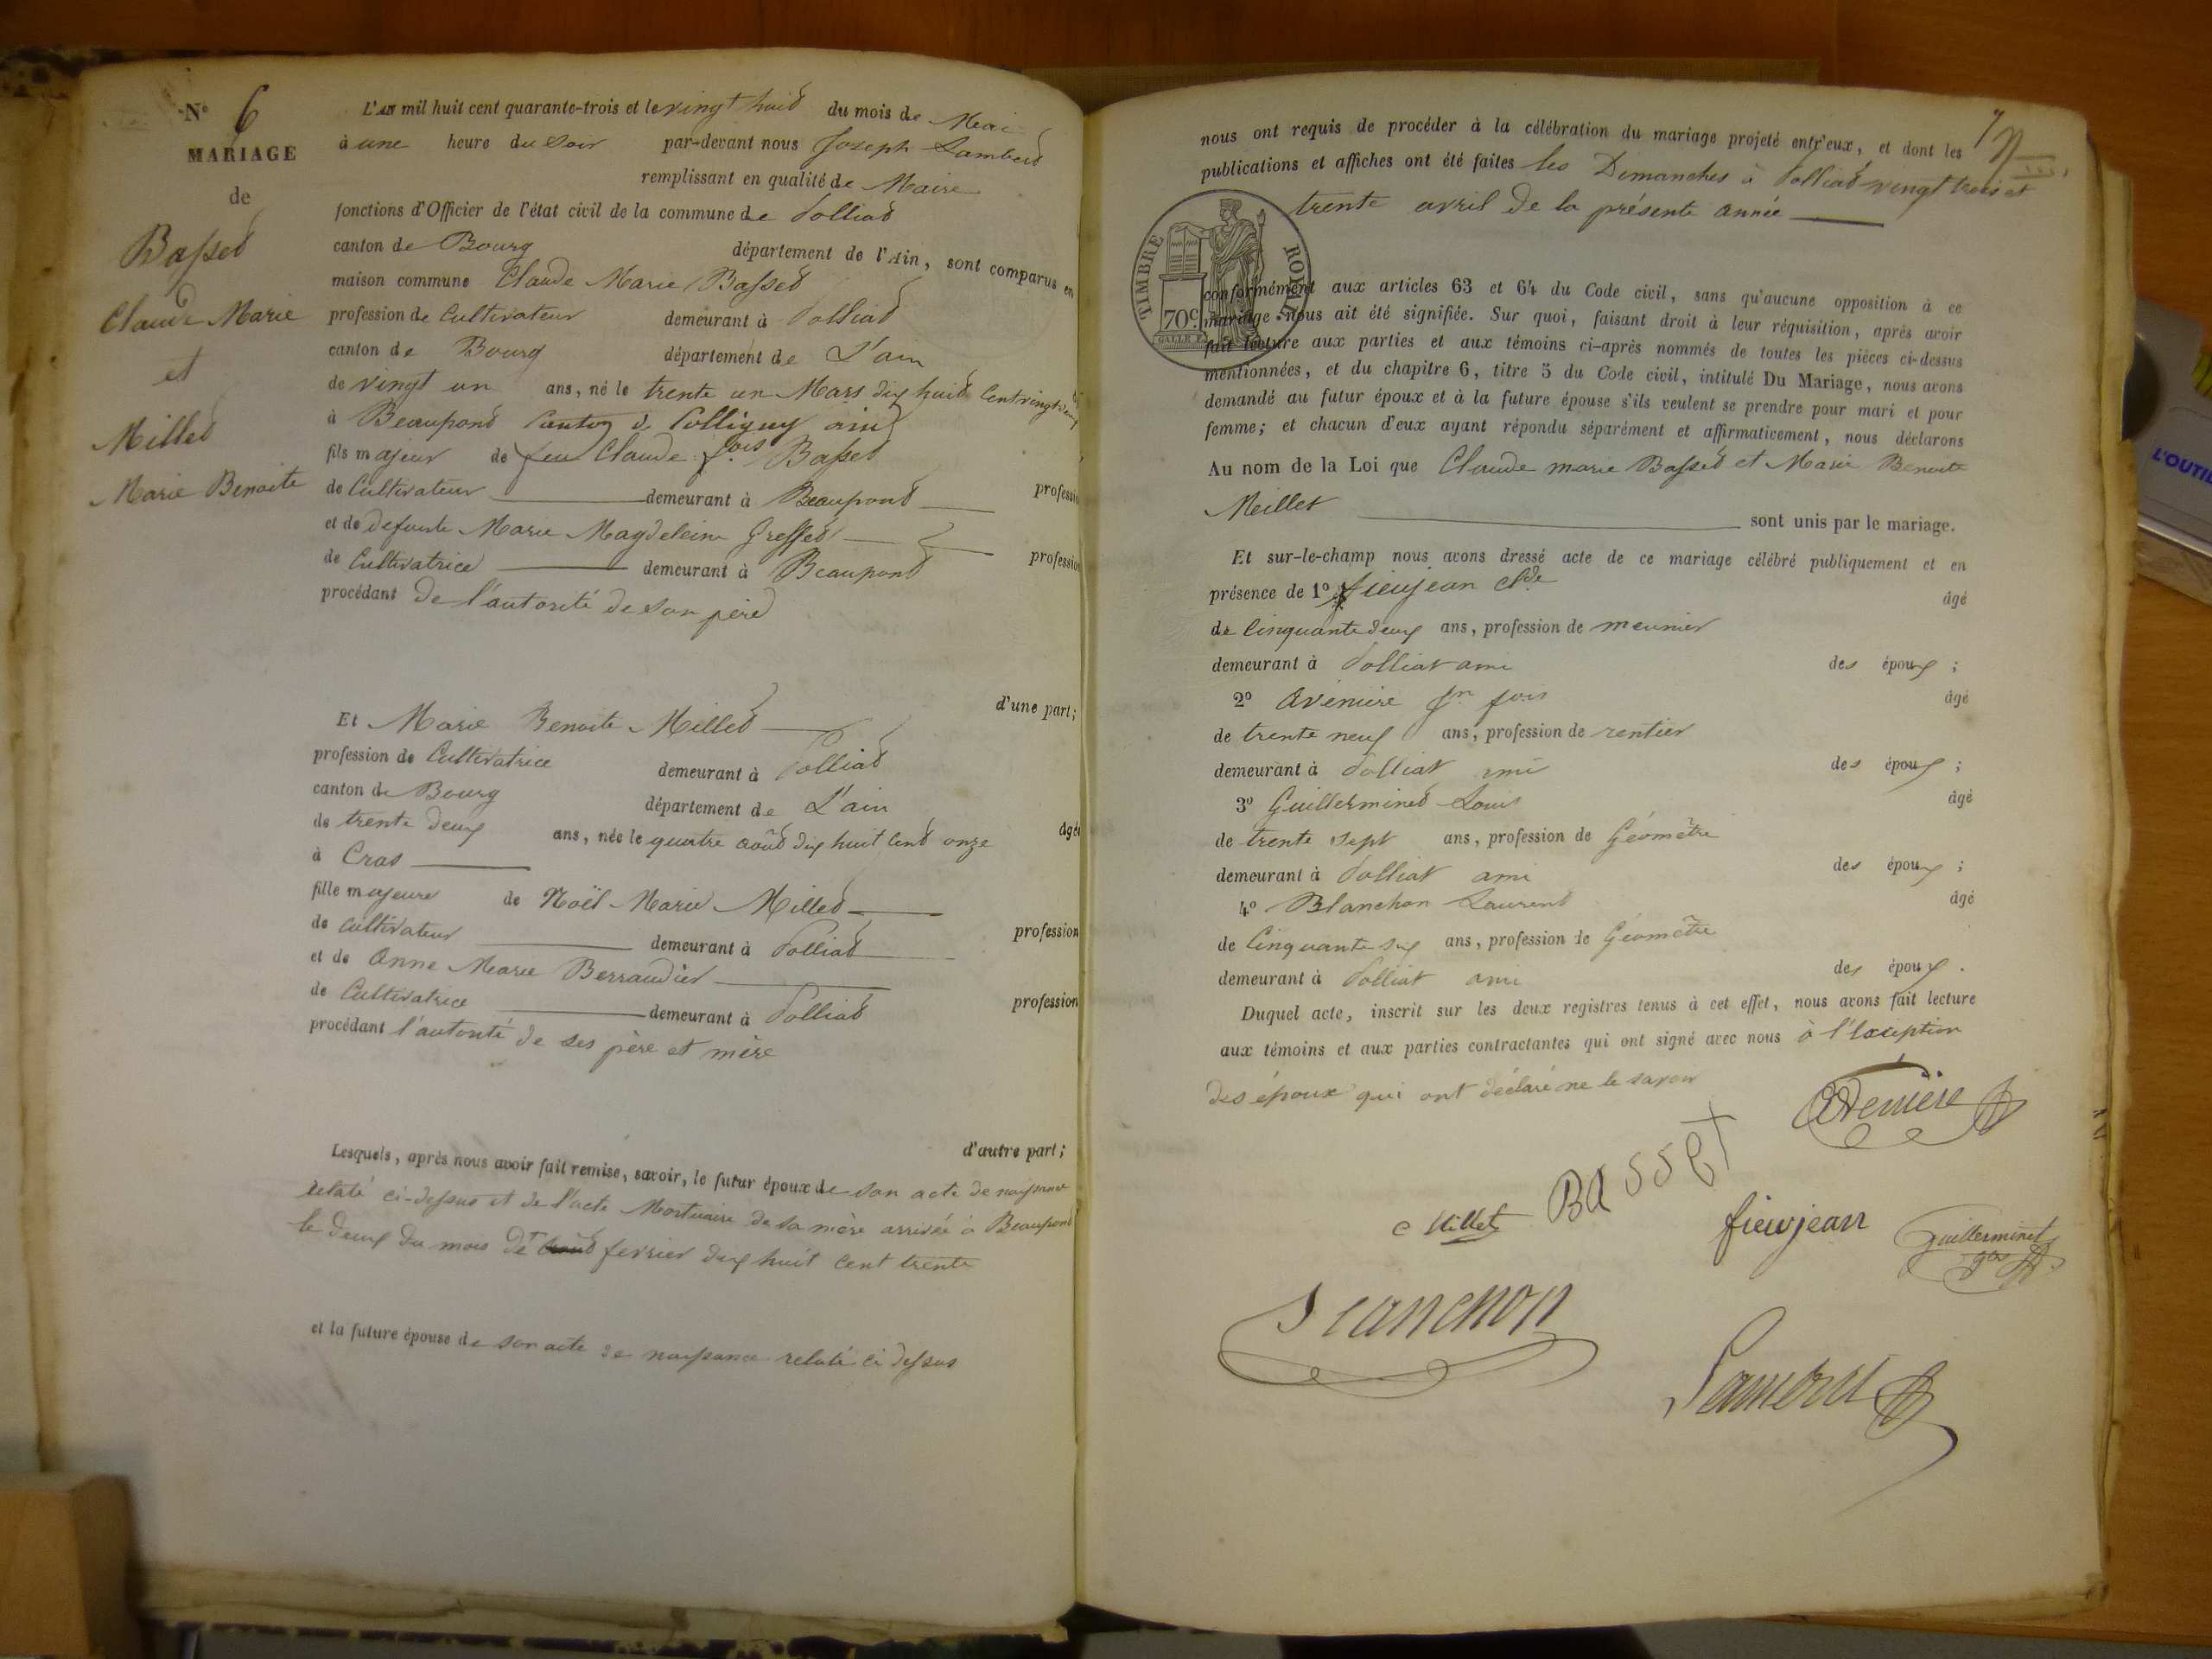 N° 6
MARIAGE
de
Basset
Claude Marie
et
Millet
Marie Benoite
L'An mil huit cent quarante-trois et le vingt huit du mois de Mai
à une heure du Soir par-devant nous Joseph Lambert
remplissant en qualité de Maire
fonctions d'Officier de l'état civil de la commune de Polliat
canton de Bourg département de l'Ain, sont comparus en
maison commune Claude Marie Basset
profession de Cultivateur demeurant à Polliat
canton de Bourg département de L'ain
de vingt un ans, né le trente un Mars dix huit Cent vingt deux
à Beaupont Canton de Colligny ain
fils majeur de feu Claude fois Basset
de Cultivateur demeurant à Beaupont profession
et de defunte Marie Magdeleine Greffet
de Cultivatrice demeurant à Beaupont profession
procédant de l'autorité de son père
d'une part;
Et Marie Benoite Millet
profession de Cultivatrice demeurant à Polliat
canton de Bourg département de L'ain
de trente deux ans, née le quatre août dix huit Cent onze âgée
à Cras
fille majeure de Noël Marie Millet
de cultivateur demeurant à Polliat profession
et de Anne Marie Berraudier
de Cultivatrice demeurant à Polliat profession
procédant l'autorité de ses père et mère
d'autre part;
Lesquels, après nous avoir fait remise, savoir, le futur époux de son acte de naissance
relaté ci-dessus et de l'acte Mortuaire de sa mère arrivée à Beaupont
le deux du mois de fevrier dix huit cent trente
et la future épouse de son acte de naissance relaté ci dessus
7
nous ont requis de procéder à la célébration du mariage projeté entr'eux, et dont les
publications et affiches ont été faites les Dimanches à Polliat vingt trois et
trente avril de la présente année
TIMBRE ROYAL
70c
conformément aux articles 63 et 64 du Code civil, sans qu'aucune opposition à ce
mariage nous ait été signifiée. Sur quoi, faisant droit à leur réquisition, après avoir
fait lecture aux parties et aux témoins ci-après nommés de toutes les pièces ci-dessus
mentionnées, et du chapitre 6, titre 5 du Code civil, intitulé Du Mariage, nous avons
demandé au futur époux et à la future épouse s'ils veulent se prendre pour mari et pour
femme; et chacun d'eux ayant répondu séparément et affirmativement, nous déclarons
Au nom de la Loi que Claude marie Basset et Marie Benoite
Meillet sont unis par le mariage.
Et sur-le-champ nous avons dressé acte de ce mariage célébré publiquement et en
présence de 1° fieujean Cde âgé
de Cinquante deux ans, profession de meunier
demeurant à Polliat ami des époux;
2° Aveniere Jn fois âgé
de trente neuf ans, profession de rentier
demeurant à Polliat ami des époux;
3° Guillerminet Louis âgé
de trente sept ans, profession de Géomètre
demeurant à Polliat ami des époux;
4° Blanchon Laurent âgé
de Cinquante six ans, profession de Géomètre
demeurant à Polliat ami des époux.
Duquel acte, inscrit sur les deux registres tenus à cet effet, nous avons fait lecture
aux témoins et aux parties contractantes qui ont signé avec nous à l'exception
des époux qui ont déclaré ne le savoir
Avenière
BASSET
Millet
fieujean
Guillerminet
Blanchon
Lambert
L'OUTIL